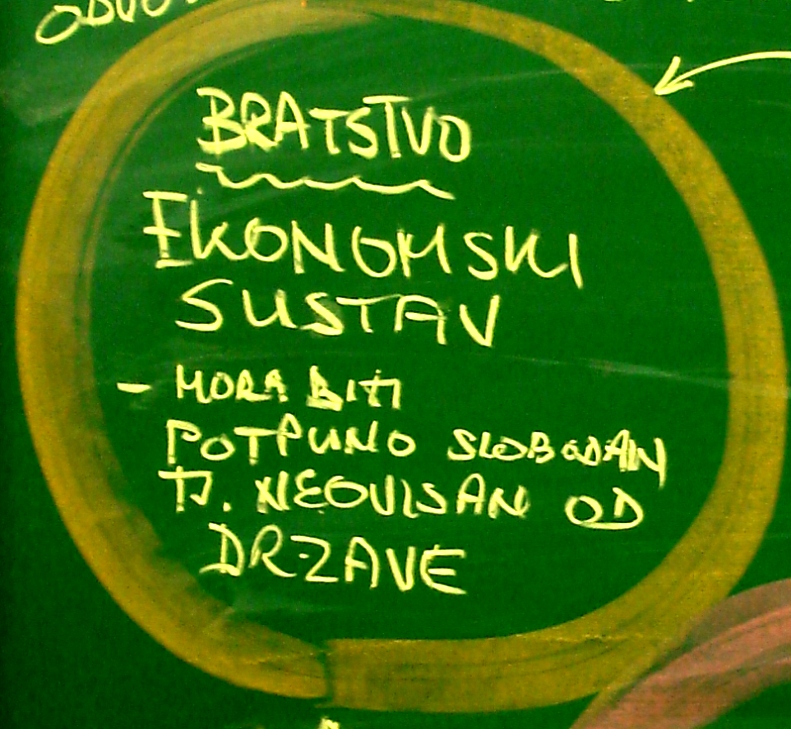 BRATSTVO
EKONOMSKI
SUSTAV
- MORA BITI
POTPUNO SLOBODAN
TJ. NEOVISAN OD
DRŽAVE